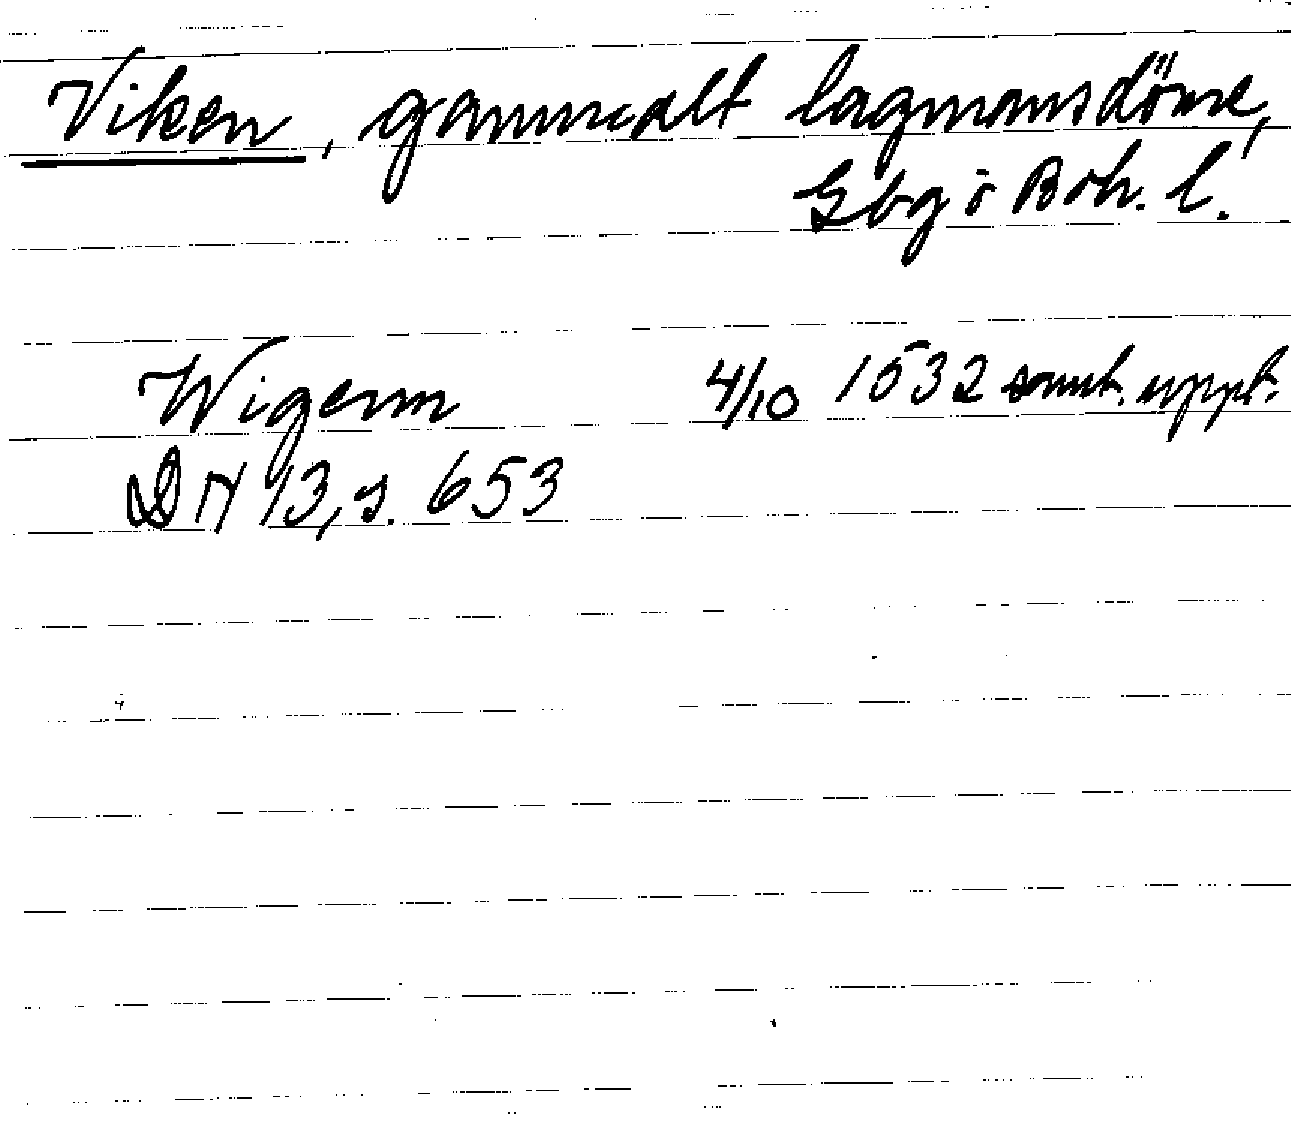 Viken, gammalt lagmansdöme,
Gbg o Boh. l.
Wigenn 4/10 1532 samt. uppt.
DN 13, s. 653